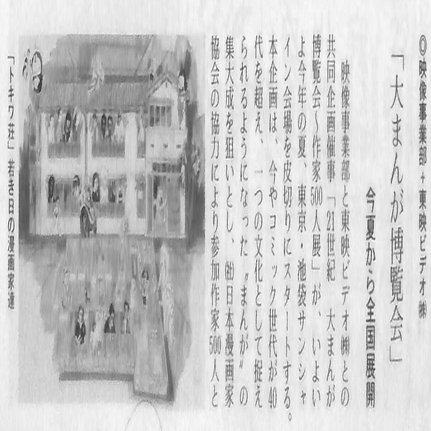 ◎映像事業部+東映ビデオ㈱
「大まんが博覧会」
今夏から全国展開
映像事業部と東映ビデオ㈱との
共同企画催事「21世紀 大まんが
博覧会〜作家500人展」が、いよい
よ今年の夏、東京・池袋サンシャ
イン会場を皮切りにスタートする。
本企画は、今やコミック世代が40
代を超え、一つの文化として捉え
られるようになった〝まんが〟の
集大成を狙いとし、㈳日本漫画家
協会の協力により参加作家500人と
「トキワ荘」若き日の漫画家達